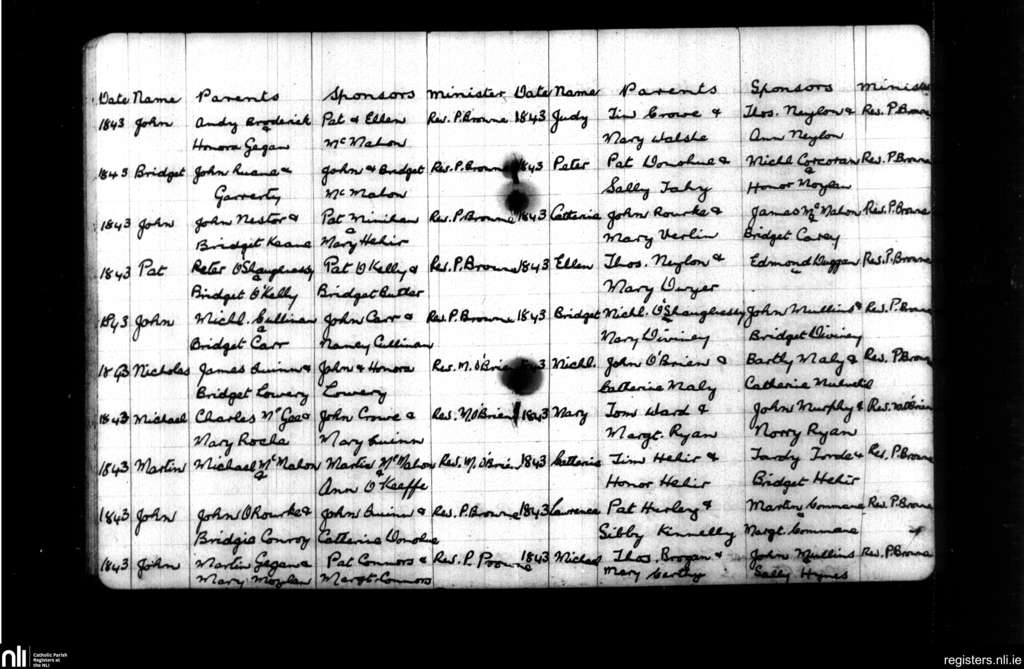 Date Name Parents Sponsors Minister Date Name Parents Sponsors Minister
1843 John Andy Broderick & Pat & Ellen Rev. P. Browne 1843 Judy Tim Crowe & Thos. Neylon & Rev. P. Browne
Honora Gegan McMahon Mary Walshe Ann Neylon
1843 Bridget John Ruane & John & Bridget Rev. P. Browne 1843 Peter Pat Donohue & Michl Corcoran & Rev. P. Browne
Garrerty McMahon Sally Fahy Honor Moylan
1843 John John Nestor & Pat Minihan & Rev. P. Browne 1843 Catterine John Rourke & James McMahon & Rev. P. Browne
Bridgit Keane Mary Hehir Mary Verlin Bridget Carey
1843 Pat Peter O'Shaughnessy & Pat O'Kelly & Rev. P. Browne 1843 Ellen Thos. Neylon & Edmond Duggan Rev. P. Browne
Bindget O'Kelly Bridget Butler Mary Dwyer
1843 John Michl. Cullinan & John Carr & Rev. P. Browne 1843 Bridget Michl. O'Shaughnessy & John Mullins & Rev. P. Browne
Bridget Carr Nancy Cullinan Mary Diviney Bridget Diviney
1843 Nicholas James Quinn & John & Honora Rev. M. O'Brien 1843 Michl. John O'Brien & Bartly Maly & Rev. P. Browne
Bridget Lowery Lowery Catherine Maly Catherine
1843 Michael Charles McGee & John Crowe & Rev. M. O'Brien 1843 Mary Tom Ward & John Murphy & Rev. M. O'Brien
Mary Roche Mary Quinn Margt. Ryan Norry Ryan
1843 Martin Michael McMahon & Martin McMahon Rev. M. O'Brien 1843 Catterine Tim Hehir & Tardy Forde & Rev. P. Browne
Ann O'Keeffe Honor Hehir Bridget Hehir
1843 John John O'Rourke & John Quinn & Rev. P. Browne 1843 Lawrence Pat Hurley & Martin Commane & Rev. P. Browne
Bridgie Conroy Catterine Donohe Sibby Kinnelly Margt. Commane
1843 John Martin Gegan & Pat Connors & Rev. P. Browne 1843 Michael Thos. Brogan & John Mullins Rev. P. Browne
Mary Moylan Margt. Connors Mary Carthy Sally Hynes
nli Catholic Parish
Registers at
the NLI
registers.nli.ie